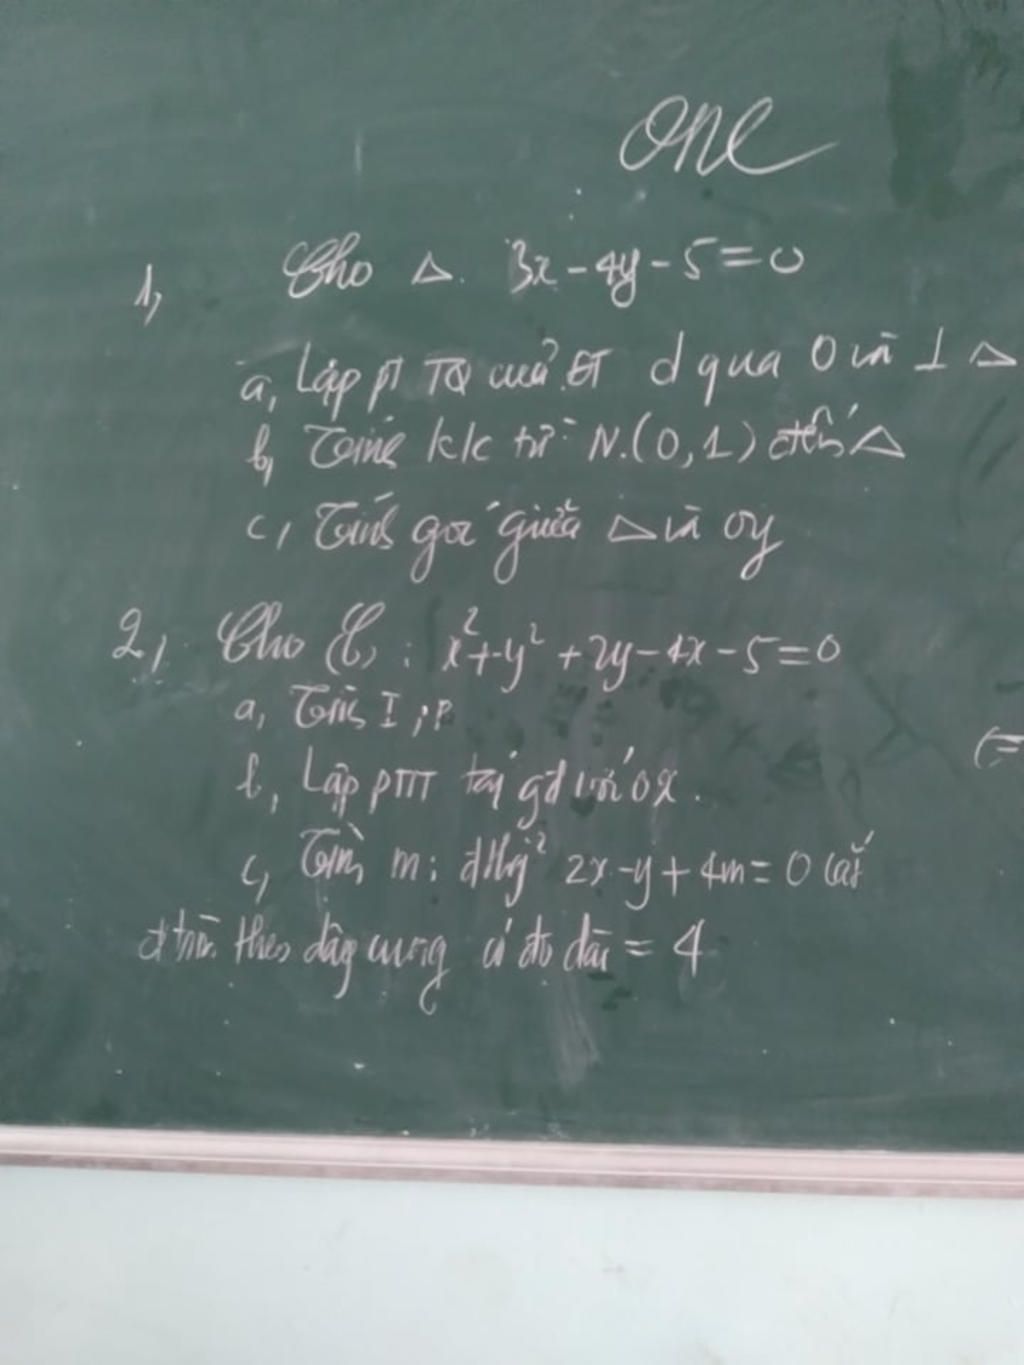 One
1, Cho Δ. 3x-4y-5=0
a, Lập pt TQ của ĐT d qua O và ⊥ Δ
b, Tính k/c từ N.(0,1) đến Δ
c, Tính góc giữa Δ và Oy
2, Cho (C): x²+y²+2y-4x-5=0
a, Tìm I, R
b, Lập PTTT tại gđ với OX.
c, Tìm m: đthg² 2x-y+4m=0 cắt
đ tròn theo dây cung có độ dài = 4
(=